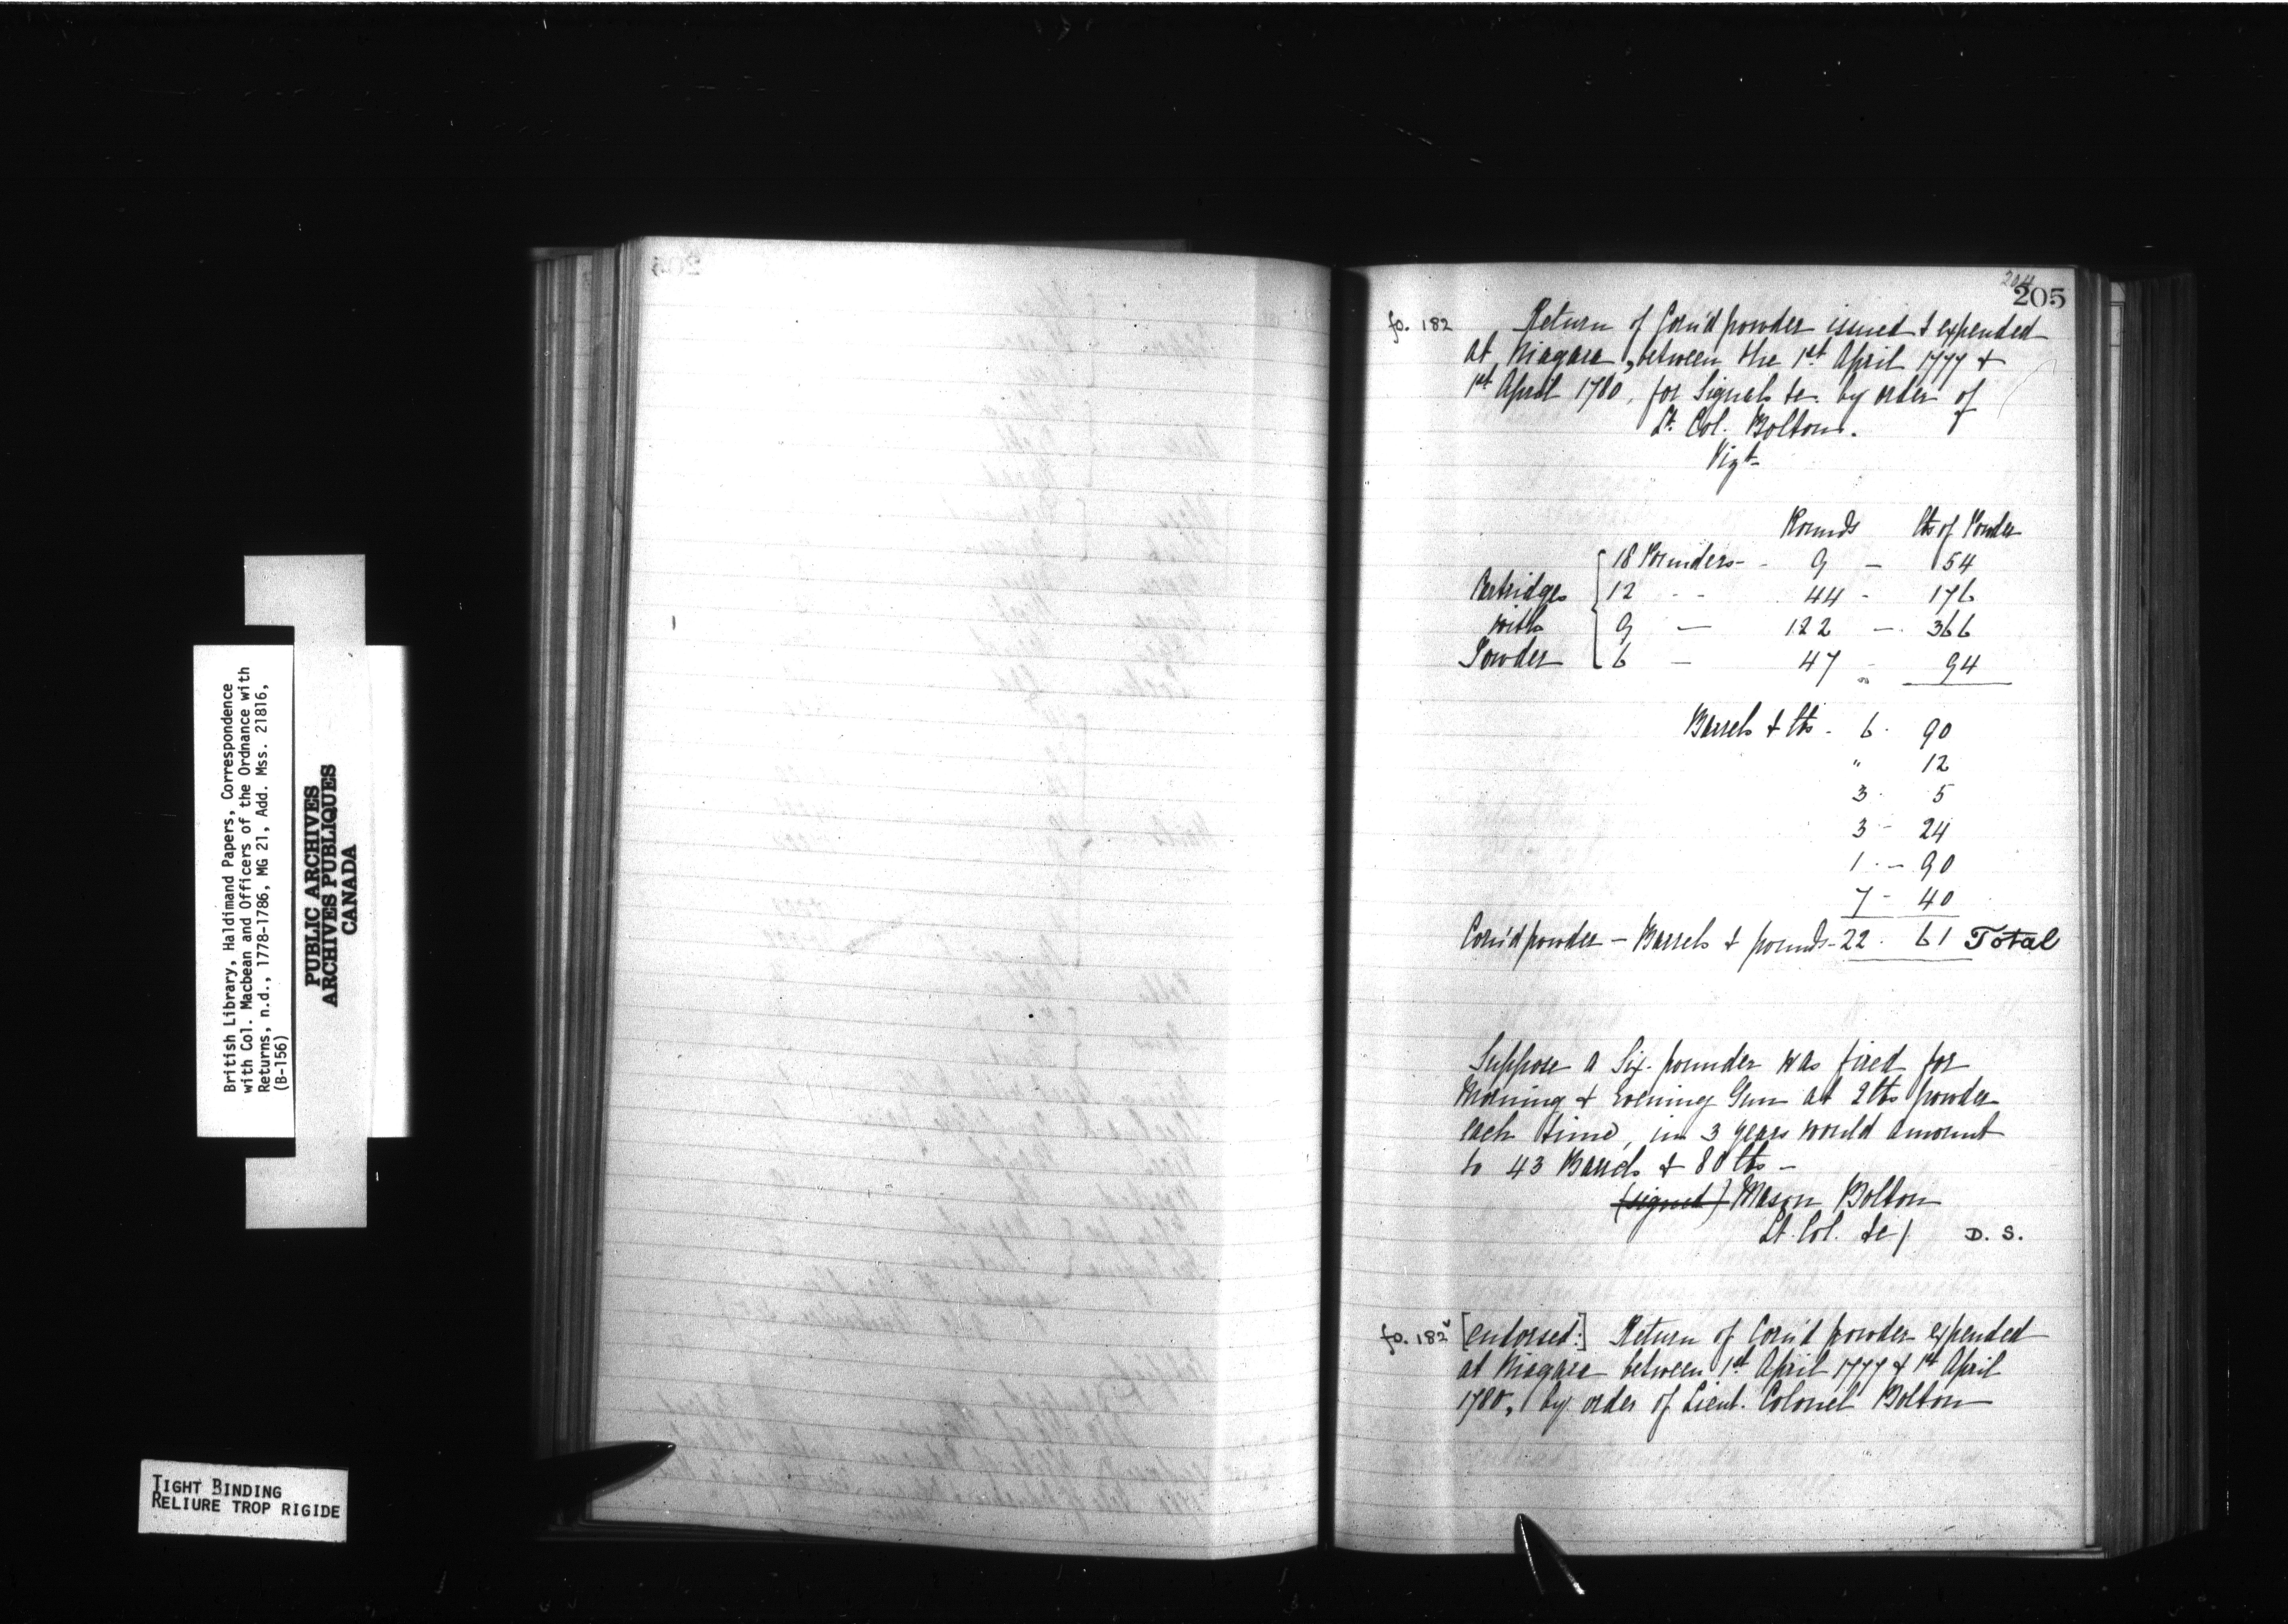 204
205
fo. 182 Return of Corn'd powder issued & expended
at Niagara, between the 1st April 1777 &
1st April 1780, for Signals &c. by order of
Lt. Col. Bolton.
Vizt
Rounds lbs of Powder
Cartridges with Powder
18 Pounders - - 9 - 54
12 - - 44 - 176
9 - 122 - 366
6 - 47 - 94
Barrels & lbs - 6 . 90
" 12
3 . 5
3 - 24
1 . - 90
7 - 40
Corn'd powder - Barrels & pounds - 22 . 61 Total
Suppose a Six-pounder was fired for
Morning & Evening Gun at 2 lbs powder
each time, in 3 years would amount
to 43 Barrels & 80 lbs -
(signed) Mason Bolton
Lt. Col. &c/ D. S.
fo. 182v [endorsed:] Return of Corn'd powder expended
at Niagara between 1st April 1777 & 1st April
1780, by order of Lieut. Colonel Bolton
British Library, Haldimand Papers, Correspondence
with Col. Macbean and Officers of the Ordnance with
Returns, n.d., 1778-1786, MG 21, Add. Mss. 21816,
(B-156)
PUBLIC ARCHIVES
ARCHIVES PUBLIQUES
CANADA
TIGHT BINDING
RELIURE TROP RIGIDE